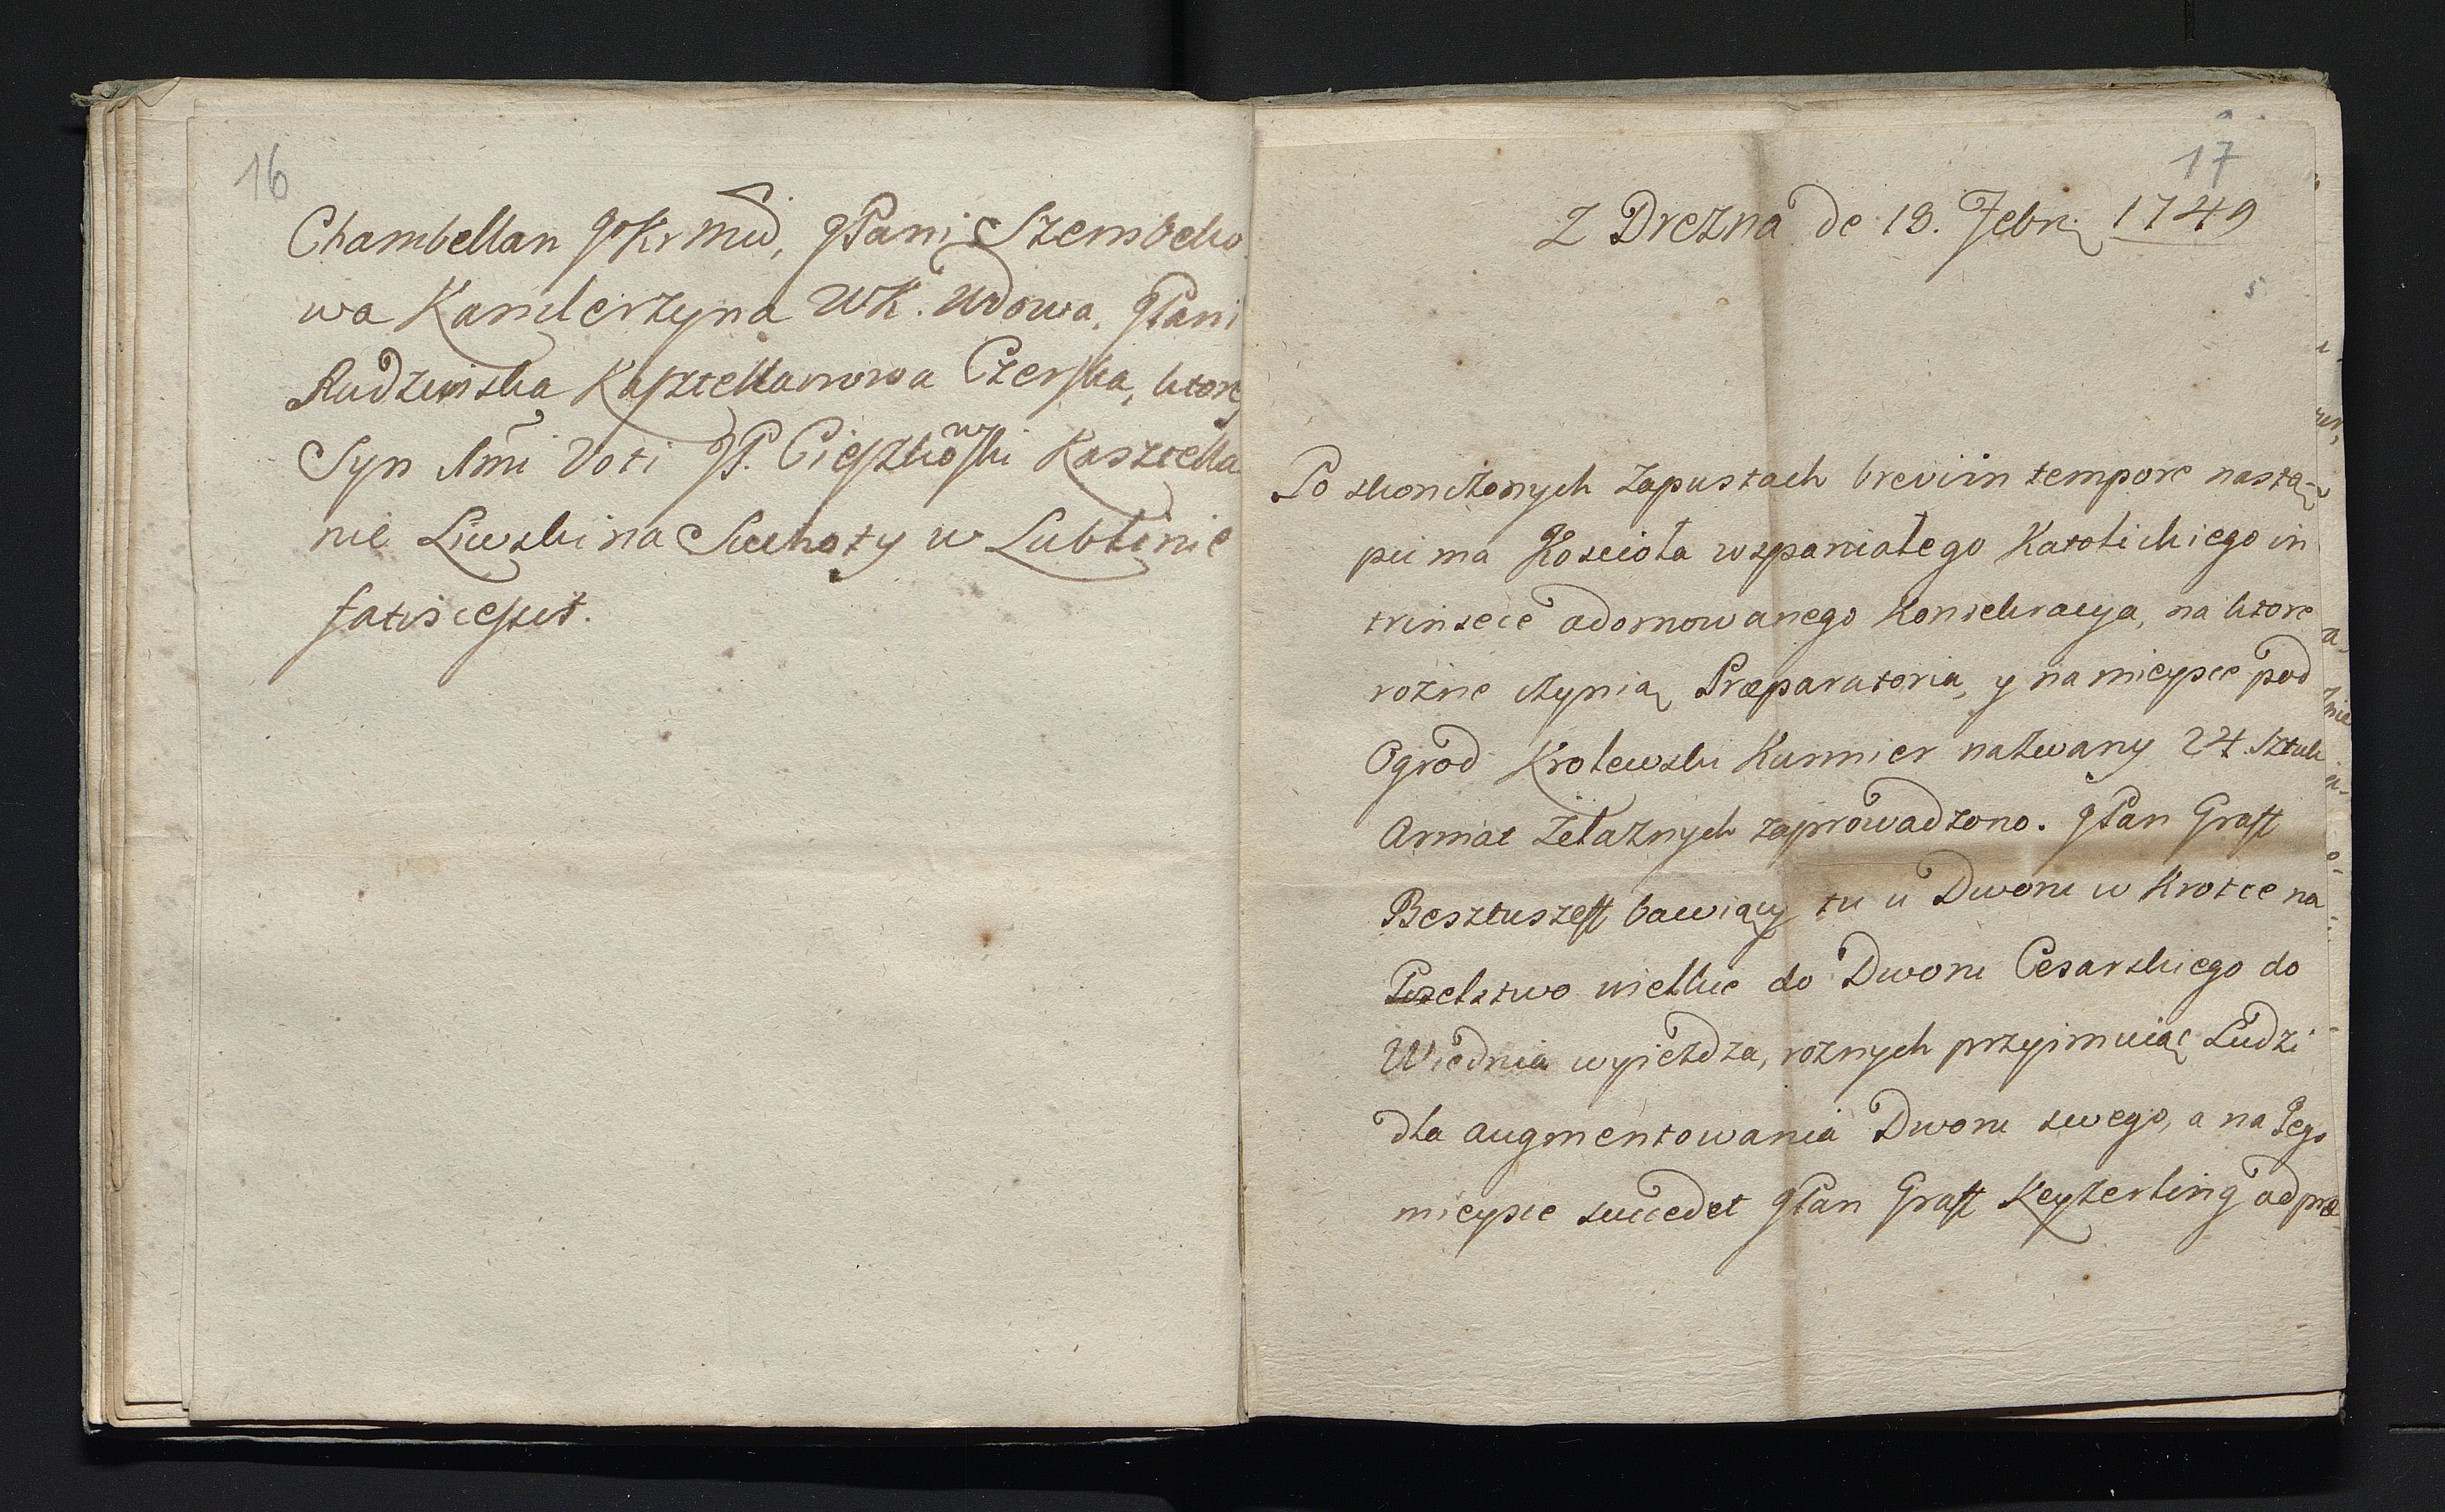 16
Chambellan JKr Mći, JPani Szembeko
wa Kamlerzyna WK. Wdowa, JPani
Rudzinska Kasztellanowa Czerska, ktorey
Syn Imi Voti JP. Cieszkowski Kasztella
nic Liwski na Suchoty w Lublinie
fatis cessit.
17
Z Drezna de 13. Febr. 1749
5
Po skonczonych Zapustach brevi in tempore nastą-
pić ma Koscioła wspaniałego Katolickiego in
trinsece adornowanego Konsekracya, na ktore
rożne czynią Præparatoria, y na mieysce pod
Ogrod Krolewski Kurmier nazwany 24. sztuk
Armat Żelaznych zaprowadzono. JPan Graff
Besztuszeff bawiący tu u Dworu w Krotce na
Poselstwo wielkie do Dworu Cesarskiego do
Wiednia wyieżdza, roznych przyimuiąc Ludzi
dla augmentowania Dworu swego, a na Jego
mieysce succedet JPan Graff Keyzerling ad præ-